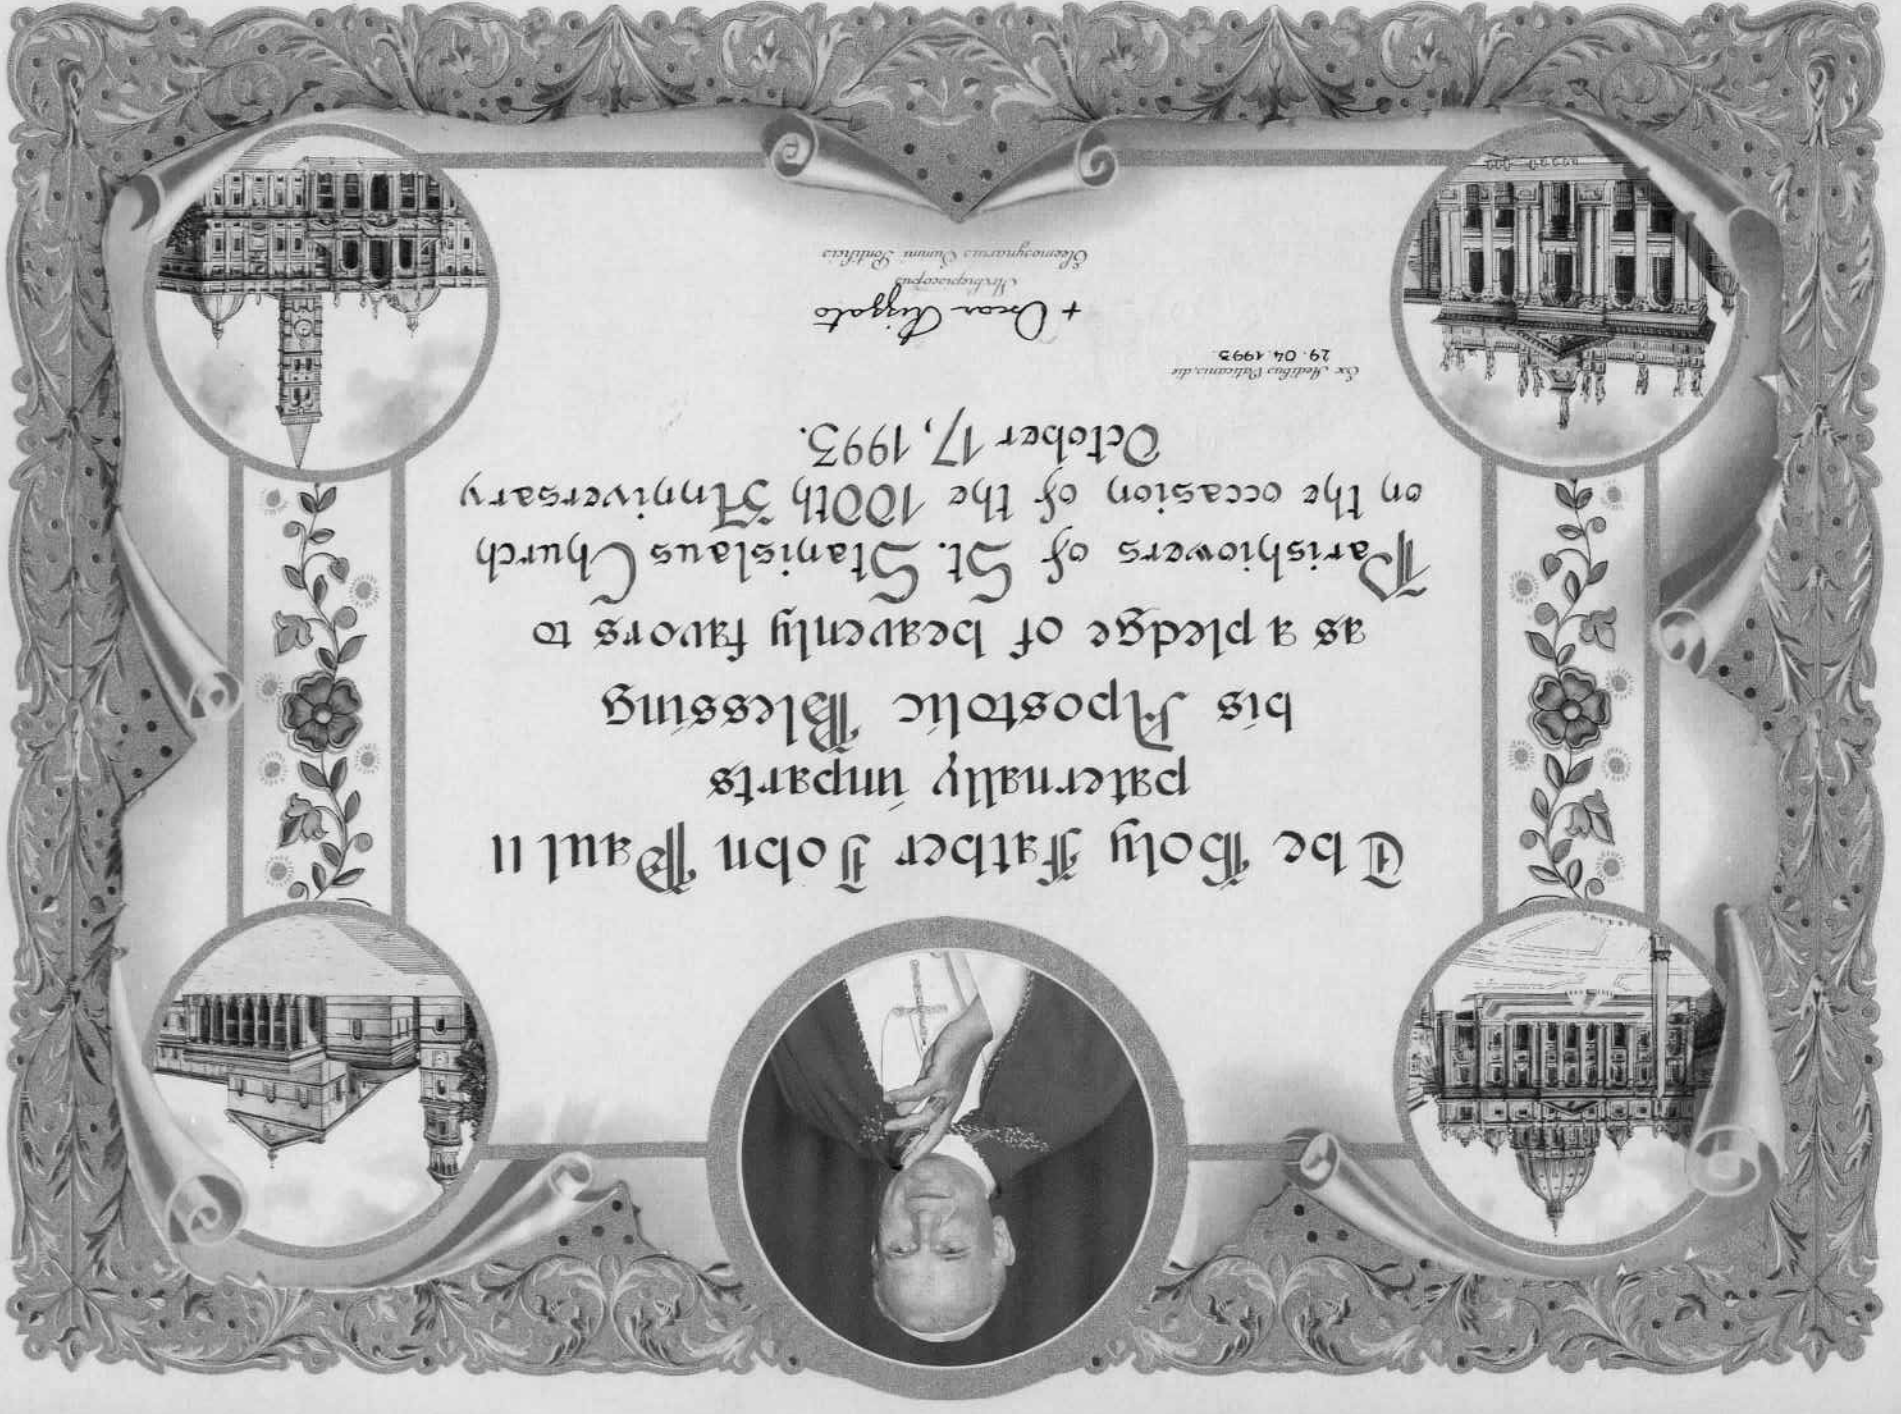 The Holy Father John Paul II
paternally imparts
his Apostolic Blessing
as a pledge of heavenly favors to
Parishiowers of St. Stanislaus Church
on the occasion of the 100th Anniversary
October 17, 1993.
Ex Aedibus Vaticanis, die
29. 04. 1993
+ Oscar Rizzato
Archiepiscopus
Eleemosynarius Summi Pontificis